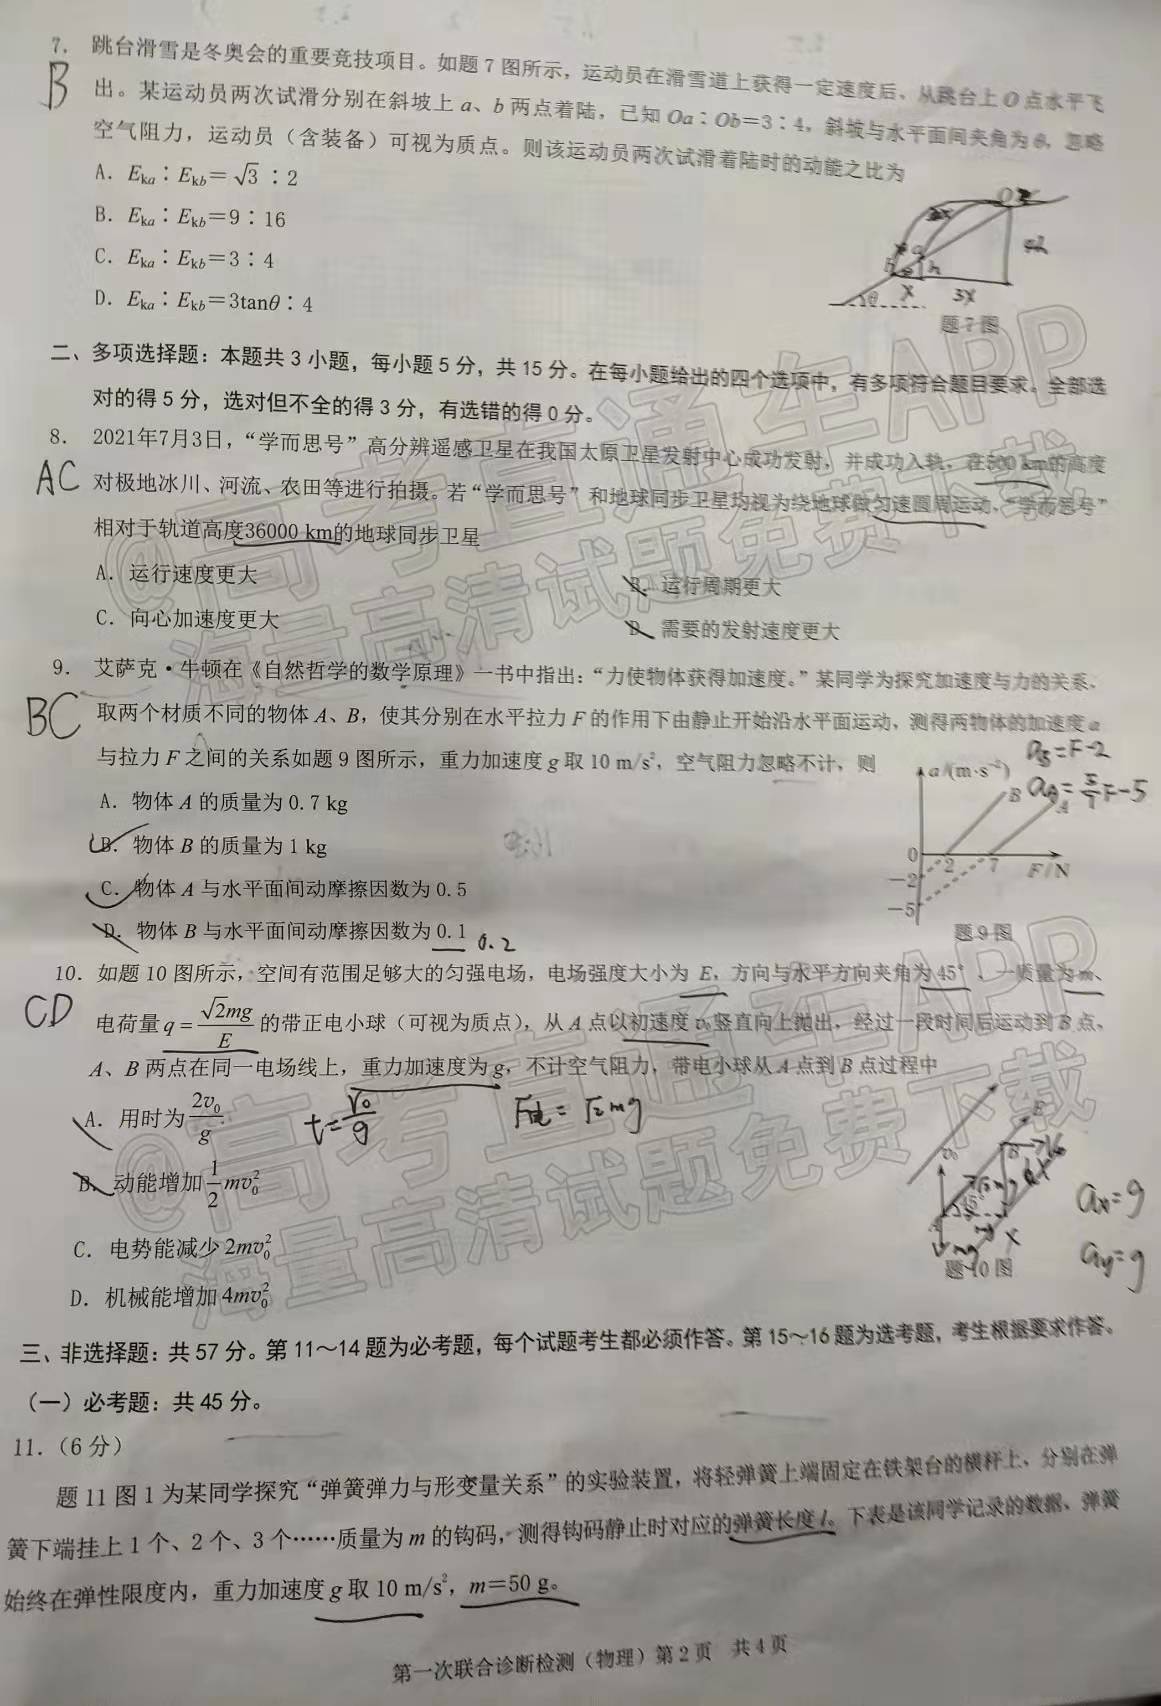 7. 跳台滑雪是冬奥会的重要竞技项目。如题7图所示，运动员在滑雪道上获得一定速度后、从跳台上O点水平飞
B
出。某运动员两次试滑分别在斜坡上a、b两点着陆，已知Oa∶Ob=3∶4，斜坡与水平面间夹角为θ，忽略
空气阻力，运动员（含装备）可视为质点。则该运动员两次试滑着陆时的动能之比为
A. Eka∶Ekb=√3∶2
B. Eka∶Ekb=9∶16
C. Eka∶Ekb=3∶4
D. Eka∶Ekb=3tanθ∶4
a
b
h
θ
x
3x
题7图
二、多项选择题：本题共3小题，每小题5分，共15分。在每小题给出的四个选项中，有多项符合题目要求。全部选
对的得5分，选对但不全的得3分，有选错的得0分。
8. 2021年7月3日，“学而思号”高分辨遥感卫星在我国太原卫星发射中心成功发射，并成功入轨，在500 km的高度
AC
对极地冰川、河流、农田等进行拍摄。若“学而思号”和地球同步卫星均视为绕地球做匀速圆周运动，“学而思号”
相对于轨道高度36000 km的地球同步卫星
A. 运行速度更大
B. 运行周期更大
C. 向心加速度更大
D. 需要的发射速度更大
9. 艾萨克·牛顿在《自然哲学的数学原理》一书中指出：“力使物体获得加速度。”某同学为探究加速度与力的关系、
BC
取两个材质不同的物体A、B，使其分别在水平拉力F的作用下由静止开始沿水平面运动，测得两物体的加速度a
与拉力F之间的关系如题9图所示，重力加速度g取10 m/s²，空气阻力忽略不计，则
A. 物体A的质量为0.7 kg
B. 物体B的质量为1 kg
C. 物体A与水平面间动摩擦因数为0.5
D. 物体B与水平面间动摩擦因数为0.1 0.2
aB=F-2
a/(m·s⁻²)
aA=5/7F-5
B
A
0
2
7
F/N
-2
-5
题9图
10. 如题10图所示，空间有范围足够大的匀强电场，电场强度大小为E，方向与水平方向夹角为45°、一质量为m、
CD
电荷量q=√2mg/E的带正电小球（可视为质点），从A点以初速度v₀竖直向上抛出，经过一段时间后运动到B点、
A、B两点在同一电场线上，重力加速度为g，不计空气阻力，带电小球从A点到B点过程中
A. 用时为2v₀/g
t=v₀/g
F电=√2mg
B. 动能增加1/2mv₀²
C. 电势能减少2mv₀²
D. 机械能增加4mv₀²
E
v₀
B
√2mg
45°
A
mg
mg
x
ax=g
ay=g
题10图
三、非选择题：共57分。第11～14题为必考题，每个试题考生都必须作答。第15～16题为选考题，考生根据要求作答。
（一）必考题：共45分。
11.（6分）
题11图1为某同学探究“弹簧弹力与形变量关系”的实验装置，将轻弹簧上端固定在铁架台的横杆上、分别在弹
簧下端挂上1个、2个、3个……质量为m的钩码，测得钩码静止时对应的弹簧长度l。下表是该同学记录的数据、弹簧
始终在弹性限度内，重力加速度g取10 m/s²，m=50 g。
第一次联合诊断检测（物理）第2页 共4页
@高考直通车APP
海量高清试题免费下载
@高考直通车APP
海量高清试题免费下载